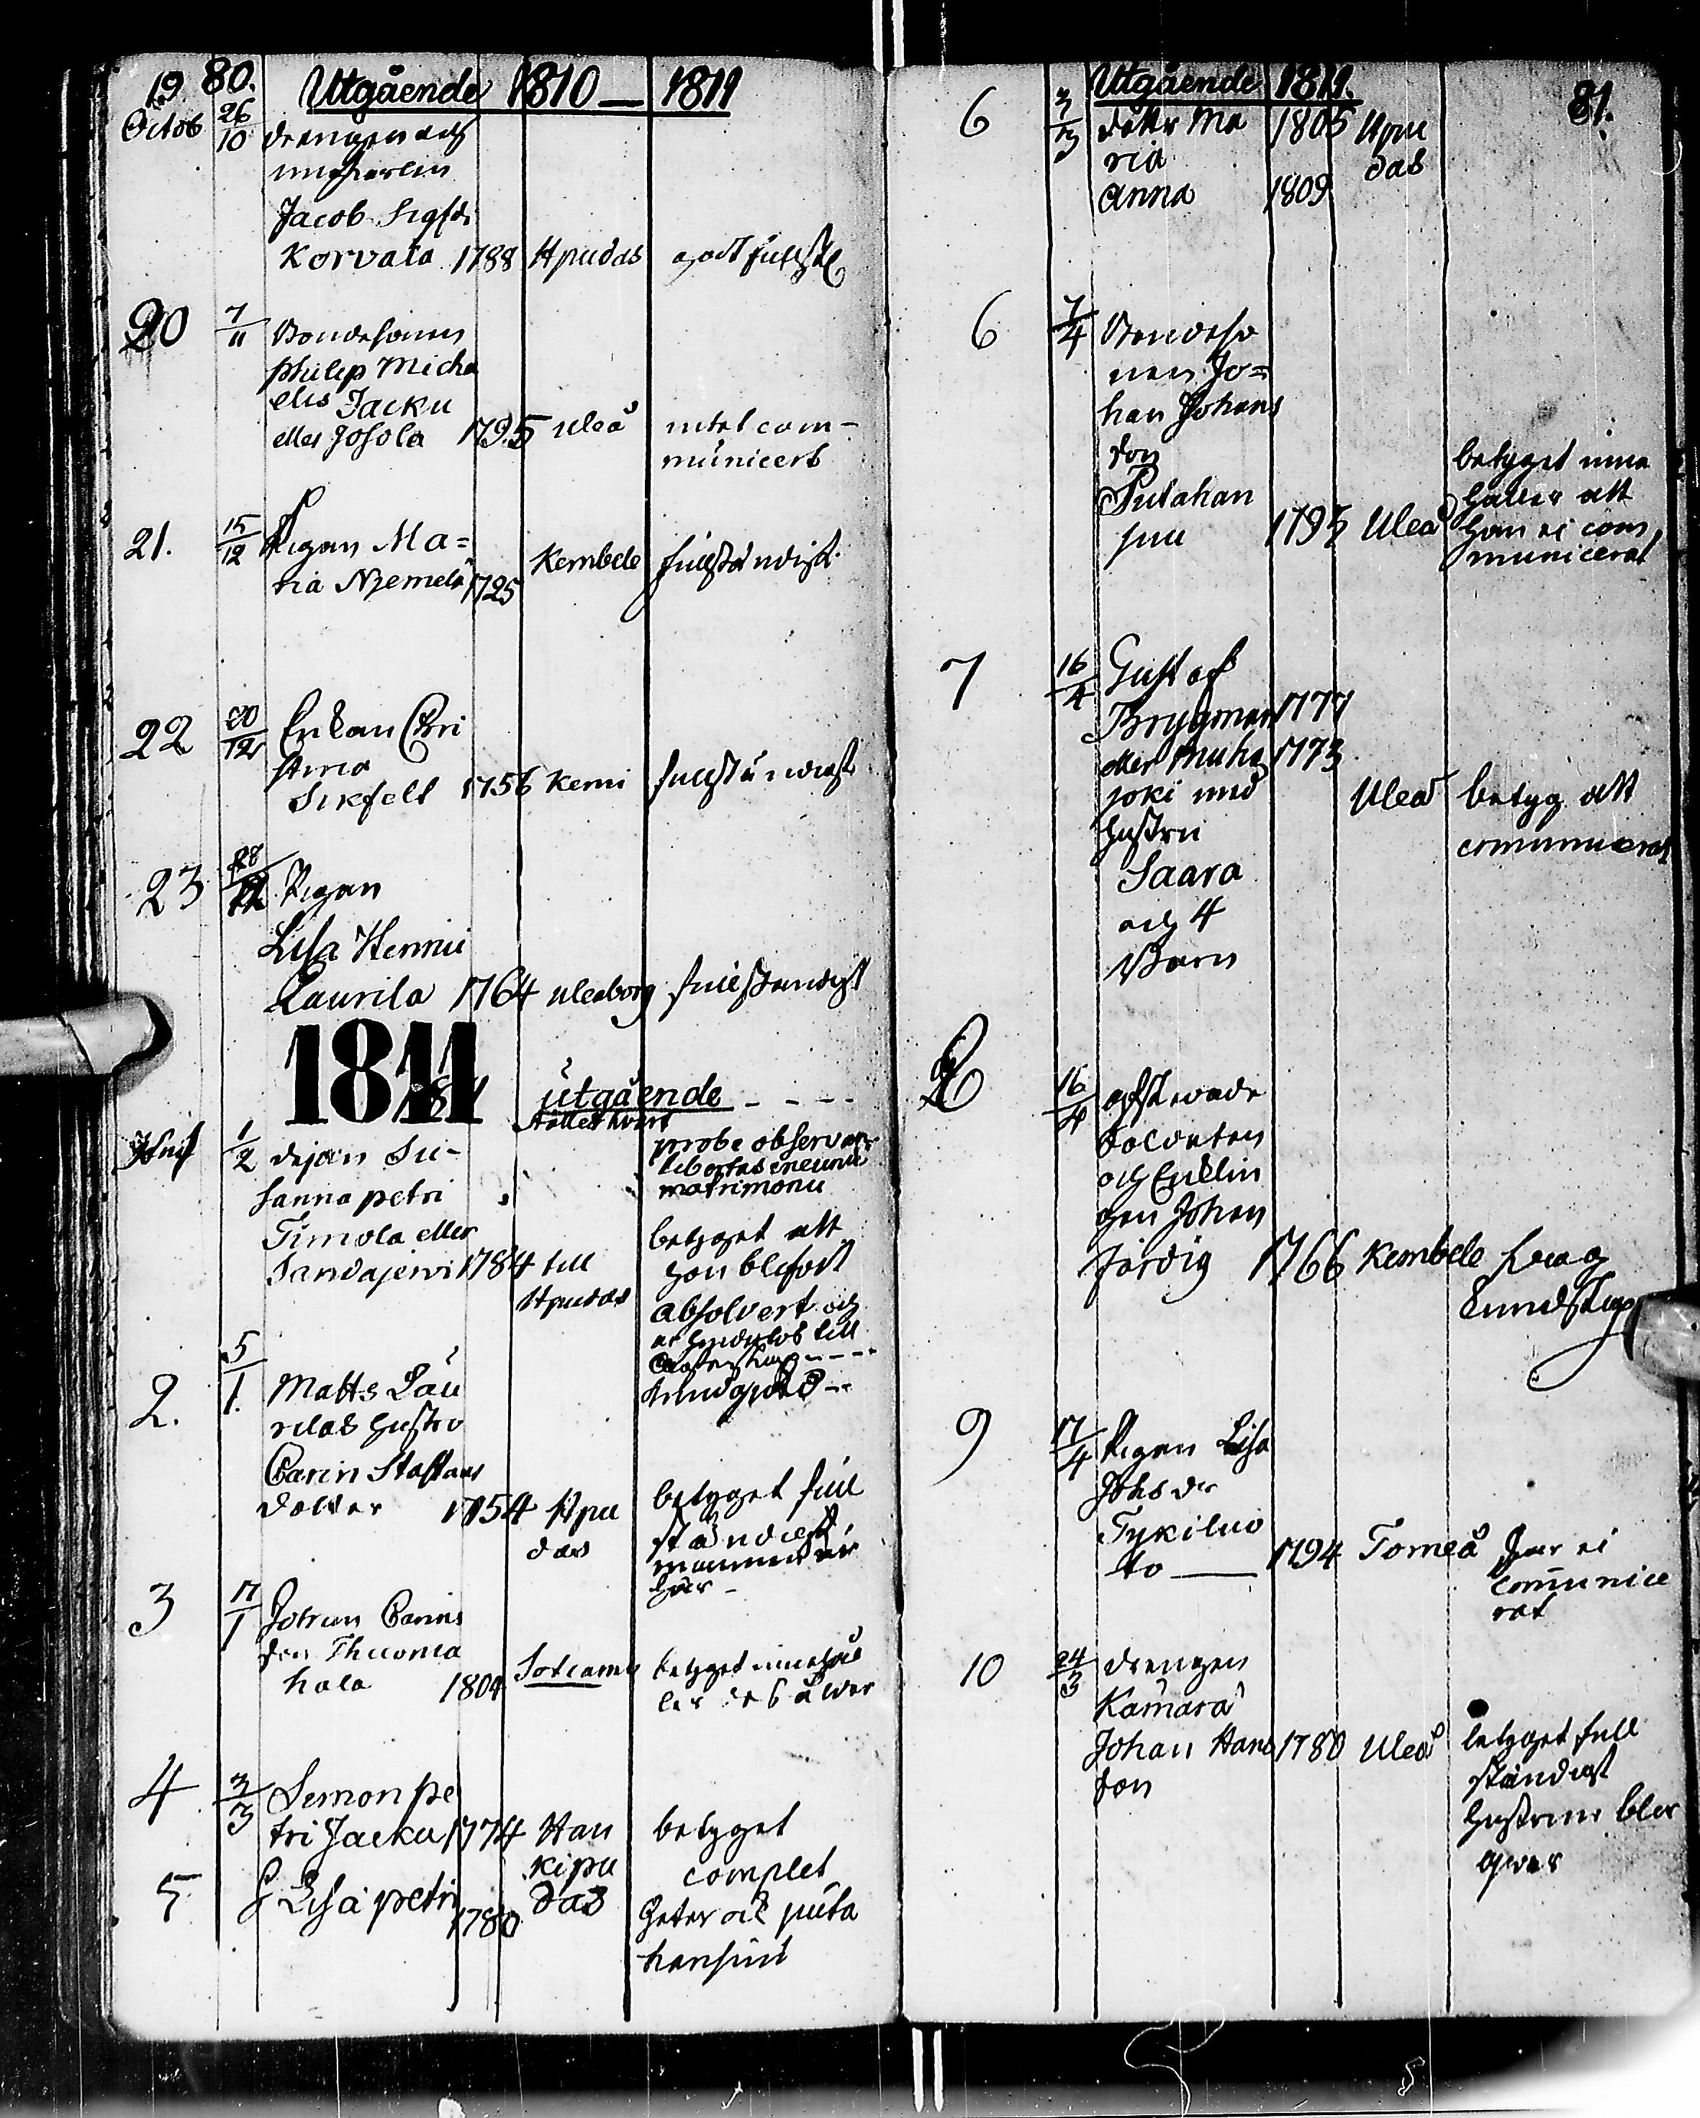 80. Utgående 1810 — 1811
19 Octob 26/10 drengen och
Jacob Sigfr.
Korvala 1788 Hpudas godt fullst
20 7/11 Bondesonen
Philip Micha
elis Jacku
eller Josola 1795 Uleå intet com-
municert
21. 15/12 Pigan Ma=
ria Niemelä 1725 Kembele fullständigt
22 20/12 Enkan Chri
stina
Sirefelt 1756 Kemi fullständigt
23 28/12 Pigan
Lisa Hennu
Laurila 1764 Uleaborg fullständigt
1811
utgående - - - -
1/2 Pejan Su-
sanna petri
Timola eller
Sandajervi 1784 till
Hpudas
probe observa
libertas ineundi
matrimonii
betyget att
hon blifvit
absolvert och
2. 5/1. Matts Lau
rilas hustro
Carin Staffans
dotter 1754 Hpu
das
betyget full
ständigt,
mannen är
här -
3 17/1 Johan Carins
son Thuoma
hala 1804 Sotcamo betyget innehål
ler
4 3/3 Simon pe
tri Jacku 1774 Hau
kipu
das
betyget
complet
5 Lisa petri 1780
heter ock puta
hansuu
Utgående 1811. 81.
6 3/3 dottr Ma
ria 1805 Hpu
das
Anna 1809
6 7/4 Bondeso
nen Jo=
han Johans
son
Putahan
suu 1795 Uleå
betyget inne
håller att
han ei com
municerat
7 16/4 Gustaf
Brygman 1777
eller Muha 1773
joki med
hustru
Saara
och 4
Barn
Uleå betyg att
communicerat
8 16/4 afskedade
Soldaten
och Enklin
gen Johan
färdig 1766 Kembele
kundskap
9 17/4 Pigan Lisa
Johs dr
Tykiluo
to — 1794 Torneå har ei
communice
rat
10 24/3 drengen
Kämärä
Johan Hans
son 1780 Uleå
betyget full
ständigt
hustrun blir
qvar